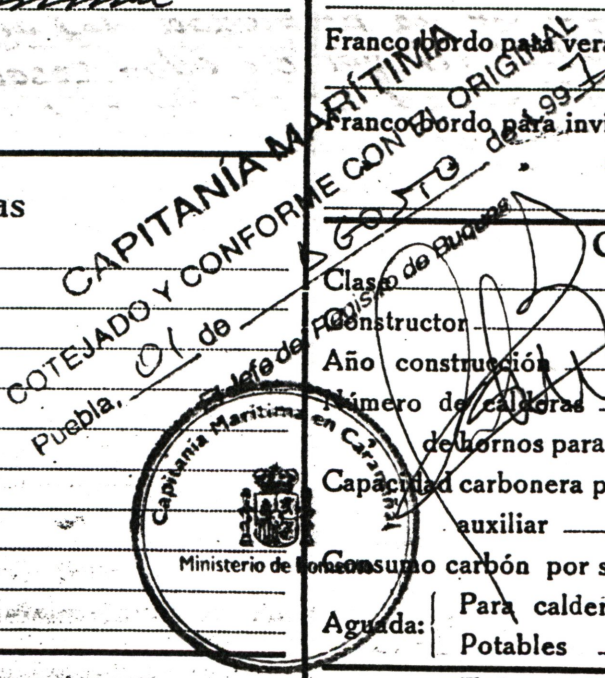 as
Franco bordo para vera
Franco bordo para invi
CAPITANÍA MARÍTIMA
COTEJADO Y CONFORME CON EL ORIGINAL
Puebla, 01 de AGOSTO de 1.997
El Jefe de Registro de Buques
Capitanía Marítima en Caramiñal
Ministerio de Fomento
Clase
Constructor
Año construcción
Número de calderas
de hornos para
Capacidad carbonera p
auxiliar
Consumo carbón por s
Aguada:
Para calder
Potables